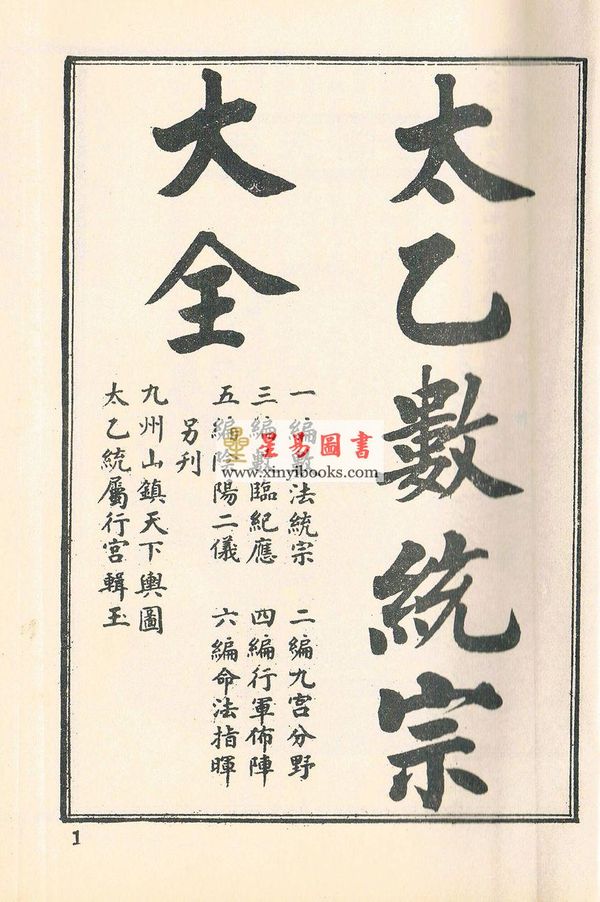 太乙數統宗
大全
一編數法統宗　二編九宮分野
三編數臨紀應　四編行軍佈陣
五編陰陽二儀　六編命法指暉
另刊
九州山鎮天下輿圖
太乙統屬行宮輯玉
星易圖書
www.xinyibooks.com
1